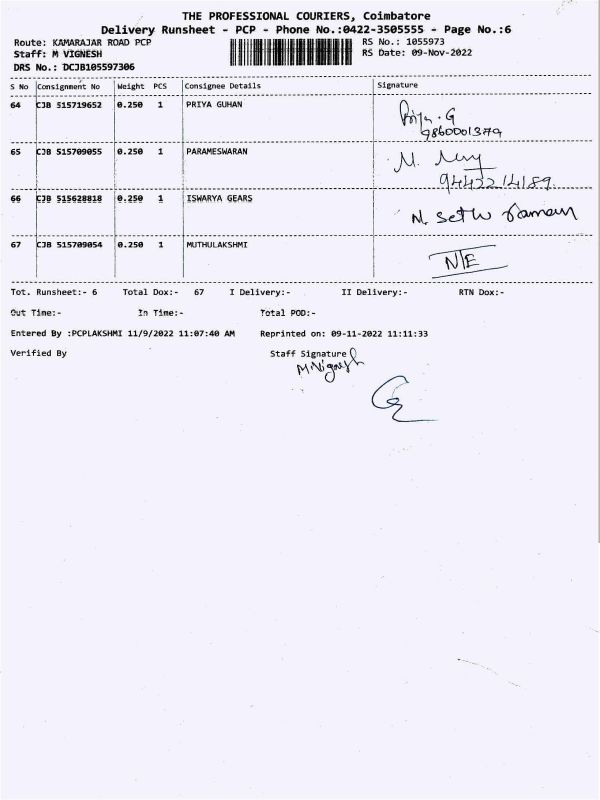 THE PROFESSIONAL COURIERS, Coimbatore
Delivery Runsheet - PCP - Phone No.:0422-3505555 - Page No.:6
Route: KAMARAJAR ROAD PCP RS No.: 1055973
Staff: M VIGNESH RS Date: 09-Nov-2022
DRS No.: DCJB105597306
S No Consignment No Weight PCS Consignee Details Signature
64 CJB 515719652 0.250 1 PRIYA GUHAN Priya. G
9860001379
65 CJB 515709055 0.250 1 PARAMESWARAN M.
9442214189
66 CJB 515628818 0.250 1 ISWARYA GEARS N. Sethu Raman
67 CJB 515709054 0.250 1 MUTHULAKSHMI N/E
Tot. Runsheet:- 6 Total Dox:- 67 I Delivery:- II Delivery:- RTN Dox:-
Out Time:- In Time:- Total POD:-
Entered By :PCPLAKSHMI 11/9/2022 11:07:40 AM Reprinted on: 09-11-2022 11:11:33
Verified By Staff Signature
M.Vignesh